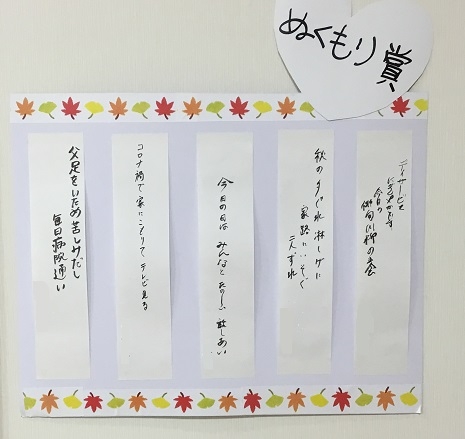 ぬくもり賞
デイサービス
にぎやかです
今日の
俳句川柳の会
秋の夕ぐれ淋しげに
家路にいそぐ
二人ずれ
今日の日は みんなと たのしい 話しあい
コロナ禍で家にこもりて テレビ見る
父足をいため苦しみだし
毎日病院通い